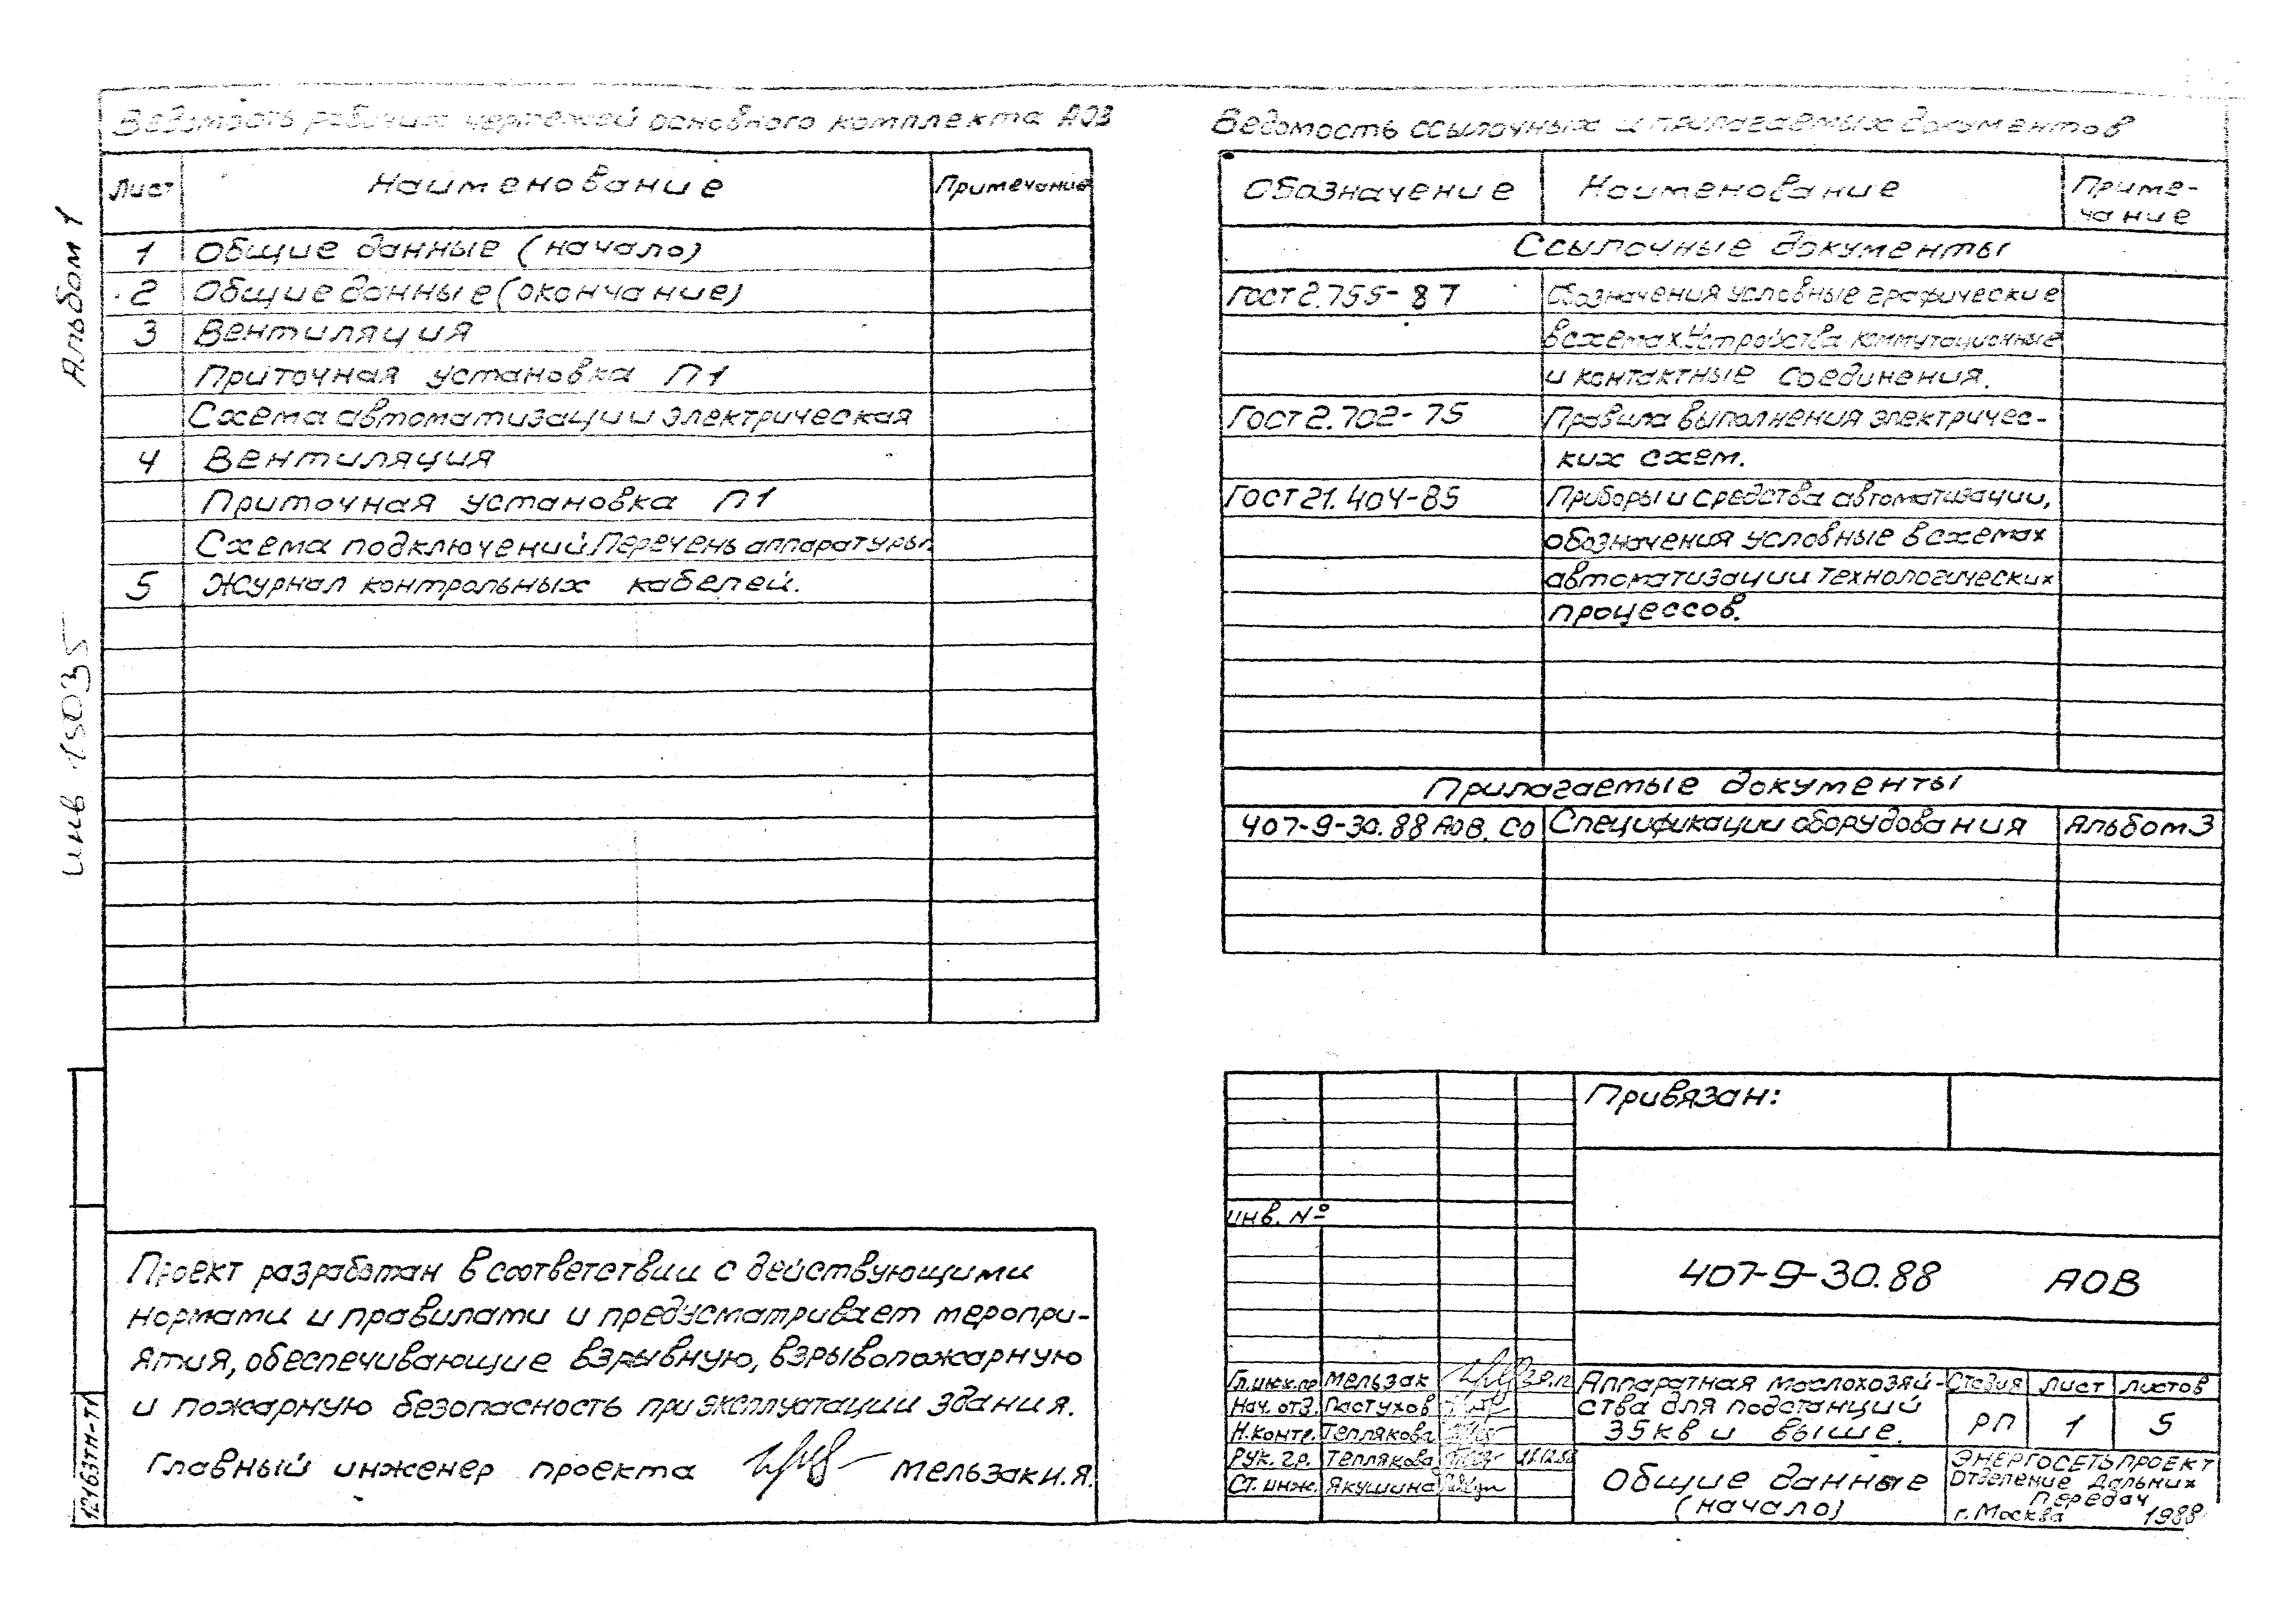 Альбом 1
инв 15035
Ведомость рабочих чертежей основного комплекта АОВ
Лист Наименование Примечание
1 Общие данные (начало)
2 Общие данные (окончание)
3 Вентиляция
Приточная установка П1
Схема автоматизации электрическая
4 Вентиляция
Приточная установка П1
Схема подключений. Перечень аппаратуры.
5 Журнал контрольных кабелей.
Ведомость ссылочных и прилагаемых документов
Обозначение Наименование Приме-
чание
Ссылочные документы
ГОСТ 2.755-87 Обозначения условные графические
в схемах. Устройства коммутационные
и контактные соединения.
ГОСТ 2.702-75 Правила выполнения электричес-
ких схем.
ГОСТ 21.404-85 Приборы и средства автоматизации,
обозначения условные в схемах
автоматизации технологических
процессов.
Прилагаемые документы
407-9-30.88 АОВ.СО Спецификации оборудования Альбом 3
Проект разработан в соответствии с действующими
нормами и правилами и предусматривает меропри-
ятия, обеспечивающие взрывную, взрывопожарную
и пожарную безопасность при эксплуатации здания.
Главный инженер проекта Мельзак И.Я.
12163тм-т1
Привязан:
инв. №
407-9-30.88 АОВ
Гл.инж.пр Мельзак
Нач. отд. Пастухов
Н.контр. Теплякова
Рук. гр. Теплякова
Ст. инж. Якушина
Аппаратная маслохозяй-
ства для подстанций
35кв и выше.
Стадия Лист Листов
РП 1 5
Общие данные
(начало)
ЭНЕРГОСЕТЬПРОЕКТ
Отделение Дальних
Передач
г. Москва 1988